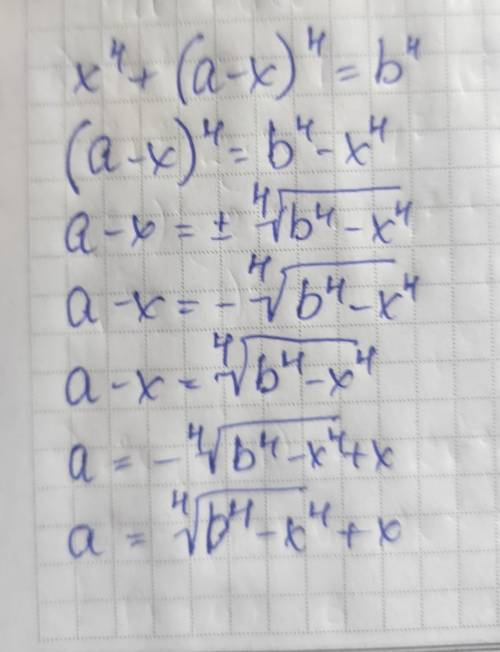 x⁴ + (a-x)⁴ = b⁴
(a-x)⁴ = b⁴ - x⁴
a - x = ± ⁴√(b⁴ - x⁴)
a - x = - ⁴√(b⁴ - x⁴)
a - x = ⁴√(b⁴ - x⁴)
a = - ⁴√(b⁴ - x⁴) + x
a = ⁴√(b⁴ - x⁴) + x